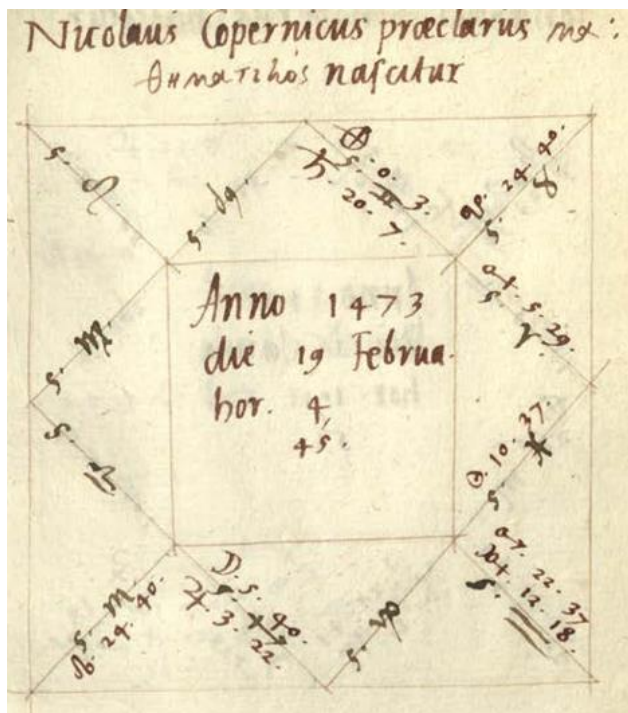 Nicolaus Copernicus præclarus μα:
θηματικὸς naſcitur
5. ♌
5. ♋
⊗. 0.
5. ♊ 3.
♄. 20. 7.
24. 40.
5. ♉
5. 29.
5. ♈
Anno 1473
die 19 Februa.
hor. 4
45.
5. ♍
☉. 10. 37.
5. ♓
5. ♎
22. 37
12. 18.
5. ♒
☽. 5. 40.
5. ♐
♃. 3. 22.
5. ♏
24. 40.
5. ♑